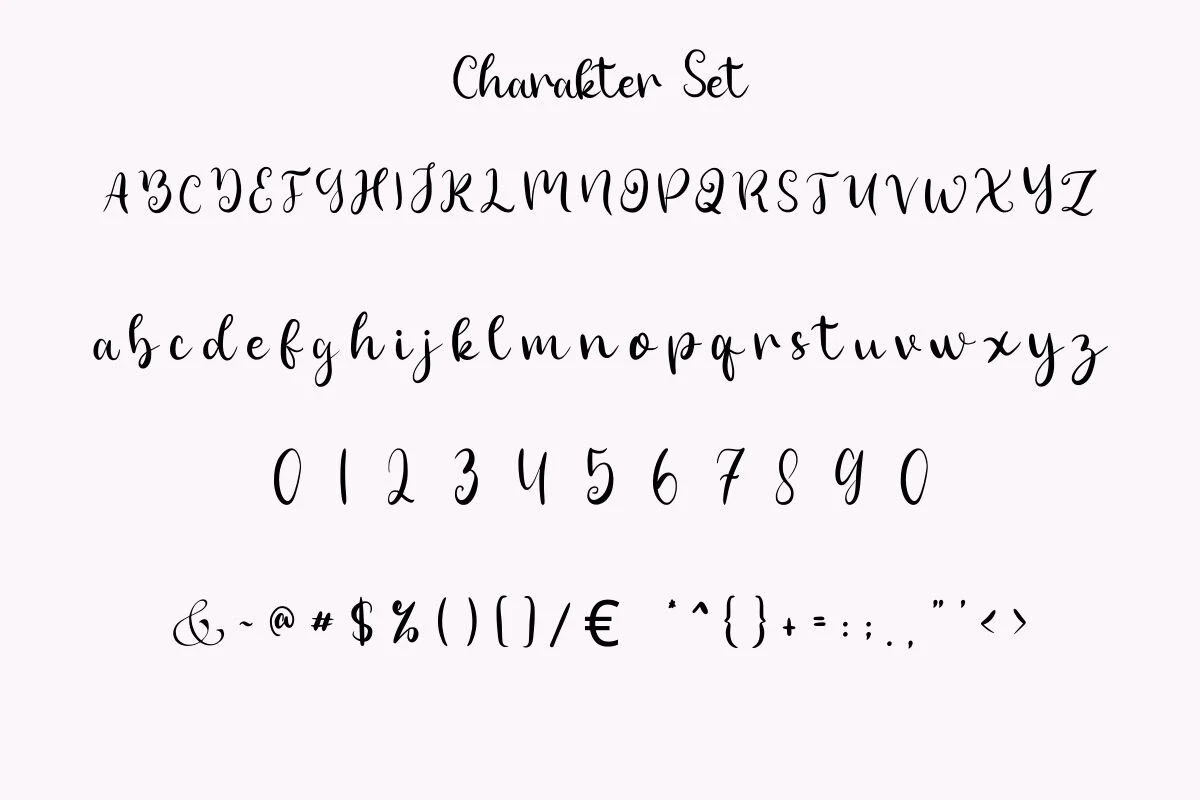 Charakter Set
A B C D E F G H I J K L M N O P Q R S T U V W X Y Z
a b c d e f g h i j k l m n o p q r s t u v w x y z
0 1 2 3 4 5 6 7 8 9 0
& ~ @ # $ % ( ) [ ] / € * ^ { } + = : ; . , " ' < >